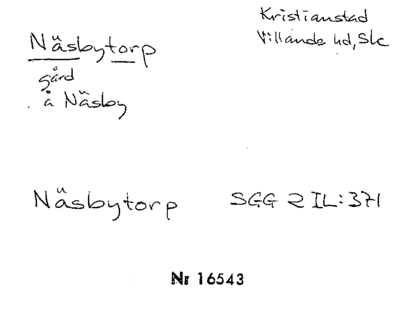 Näsbytorp
gård
å Näsby
Kristianstad
Villands hd, Skc
Näsbytorp SGG 2 IL:371
Nr 16543